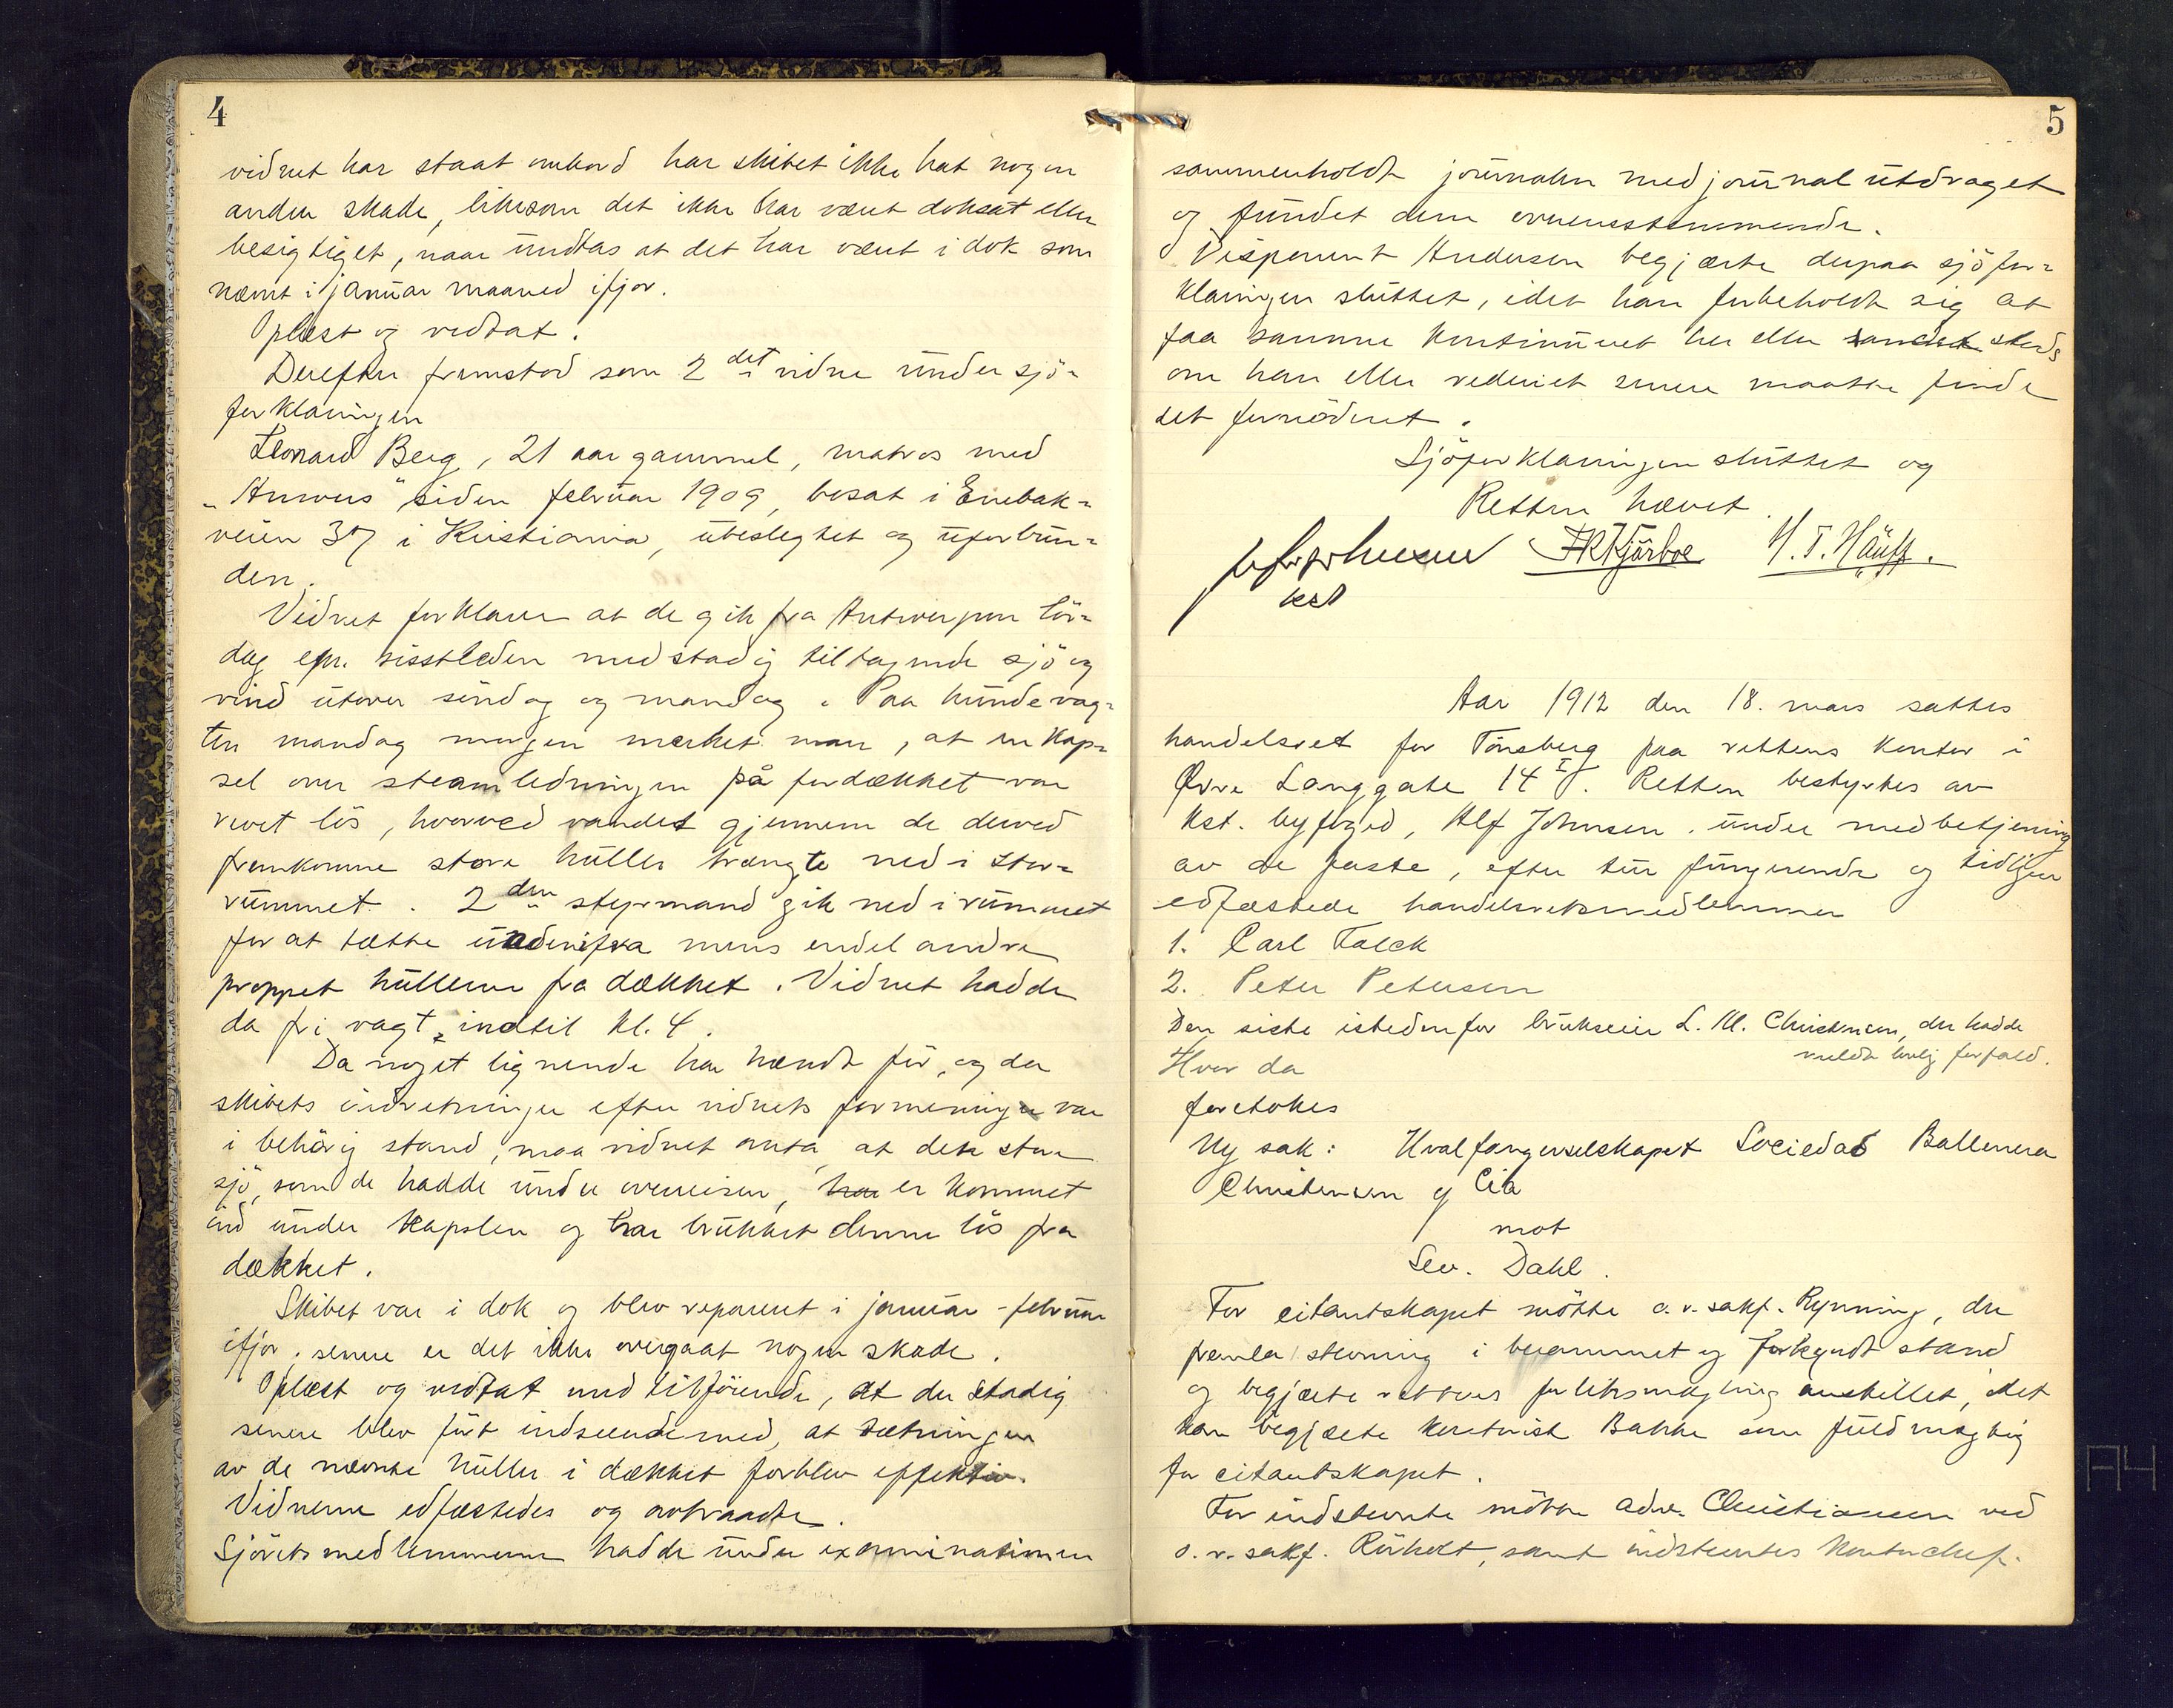 4
vidnet har staat ombord har skibet ikke hat nogen
anden skade, likesom det ikke har været doksat eller
besigtiget, naar undtas at det har været i dok som
nævnt i januar maaned ifjor.
Oplæst og vedtat.
Derefter fremstod som 2 det vidne under sjö-
forklaringen
Leonard Berg, 21 aar gammel, matros med
"          " siden februar 1909, bosat i Enebak-
veien 37 i Kristiania, ubeslegtet og uforbun-
den.
Vidnet forklarer at de gik fra Antwerpen lör-
dag efm. sisstleden med stadig tiltagende sjö og
vind utover söndag og mandag. Paa hundevag-
ten mandag morgen merket man, at en kap-
sel over steamledningen på fordækket var
revet lös, hvorved vandet gjennem de derved
fremkomne store huller trængte ned i stor-
rummet. 2 den styrmand gik ned i rummet
for at tætte undenifra mens endel andre
proppet hullerne fra dækket. Vidnet hadde
da fri vagt indtil kl. 4.
Da noget lignende har hændt för, og da
skibets indretninger efter vidnets formening var
i behörig stand, maa vidnet anta at den store
sjö, som de hadde under overreisen, har er kommet
ind under kapslen og har brukket denne lös fra
dækket.
Skibet var i dok og blev reparert i januar - februar
ifjor, senere er det ikke overgaat nogen skade.
Oplæst og vedtat med tilföiende, at der stadig
senere blev fört indseende med, at tætningen
av de nævnte huller i dækket forblev effektiv.
Vidnerne edfæstedes og avtraadte.
Sjöretsmedlemmerne hadde under examinationen
5
sammenholdt journalen med journalutdraget
og fundet dem overensstemmende.
Disponent Andersen begjærte derpaa sjöfor-
klaringen sluttet, idet han forbeholdt sig at
faa samme kontinuert her eller andet steds
om han eller rederiet senere maatte finde
det fornödent.
Sjöforklaringen sluttet og
Retten hævet.
Kjärboe H. T. Häuff.
kst
Aar 1912 den 18. mars sattes
handelsret for Tönsberg paa rettens kontor i
Övre Langgate 14 I. Retten bestyrtes av
kst. byfoged, Alf Johnsen under medbetjening
av de faste, efter tur fungerende og tidligere
edfæstede handelsretsmedlemmer
1. Carl Falck
2. Peter Petersen
Den siste istedenfor brukseier L. M. Christensen, der hadde
meldt lovlig forfald.
Hvor da
foretokes
Ny sak: Hvalfangerselskapet Sociedad Ballenera
Christensen og Cia
mot
Sev. Dahl.
For citantskapet mötte o.r.sakf. Rynning, der
fremla stevning i berammet og forkyndt stand
og begjærte rettens forliksmægling anstillet, idet
han begjærte kontorist Bakke som fuldmægtig
for citantskapet.
For indstevnte mötte adv. Christiansen ved
o.r.sakf.          , samt indstevntes kontorchef.